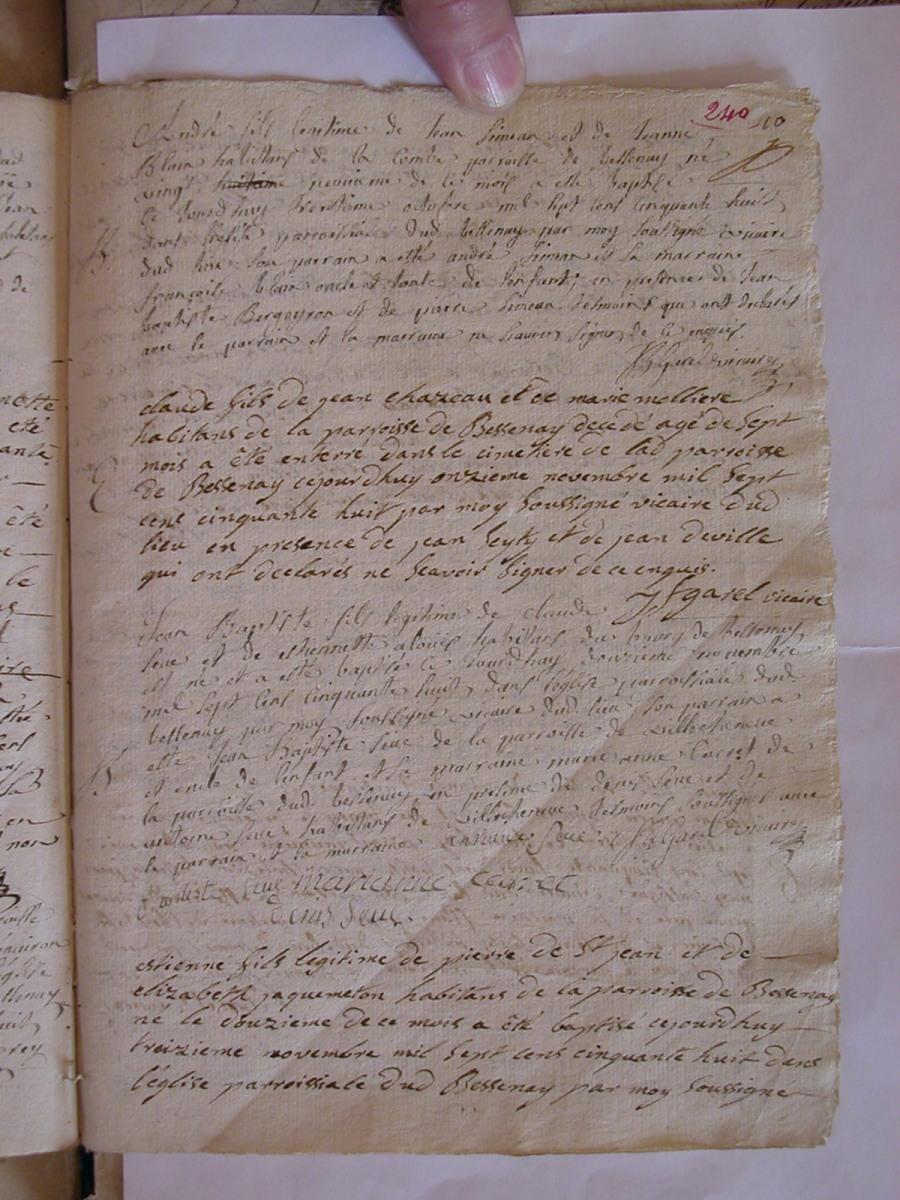 240 10
André fils legitime de Jean Simean et de Jeanne
Blain habitans de la Combe parroisse de bessenay né
vingt neuvieme de ce mois a esté baptisé
ce jourdhuy trentieme octobre mil sept cens cinquante huit
dans l'eglise parroissiale dud bessenay par moy soussigné vicaire
dud lieu son parrain a esté andré Simean et la marraine
françoise blain oncle et tante de l'enfant, en presence de Jean
baptiste Bergeyron et de pierre Simean tesmoins qui ont declarés
avec le parrain et la marraine ne scavoir signer de ce enquis
JfGarel vicaire
B.
claude fils de jean chazeau et de marie molliere
habitans de la parroisse de Bessenay decedé agé de sept
mois a été enterré dans le cimetière de lad parroisse
E
de Bessenay cejourdhuy onzieme novembre mil sept
cens cinquante huit par moy soussigné vicaire dud
lieu en presence de jean et de jean deville
qui ont declarés ne scavoir signer de ce enquis.
Jfgarel vicaire
Jean Baptiste fils legitime de claude
seue et de estiennette habitans du bourg de bessenay
est né et a esté baptisé ce jourdhuy douzieme novembre
mil sept cens cinquante huit, dans l'église parroissiale dud
bessenay par moy soussigné vicaire dud lieu son parrain a
esté Jean Baptiste seue de la parroisse de villecheneue
B.
et oncle de l'enfant et la marraine marie anne Carret de
la parroisse dud bessenay en presence de denis seue et de
antoine seue habitans de villecheneue tesmoins soussignés avec
le parrain et la marraine antoine seue JfGarel vicaire
seue marianne
denis seue.
estienne fils legitime de pierre de St jean et de
elizabeth jaquemeton habitans de la parroisse de Bessenay
né le douzieme de ce mois a été baptisé cejourdhuy
treizieme novembre mil sept cens cinquante huit dans
l'église parroissiale dud Bessenay par moy soussigné